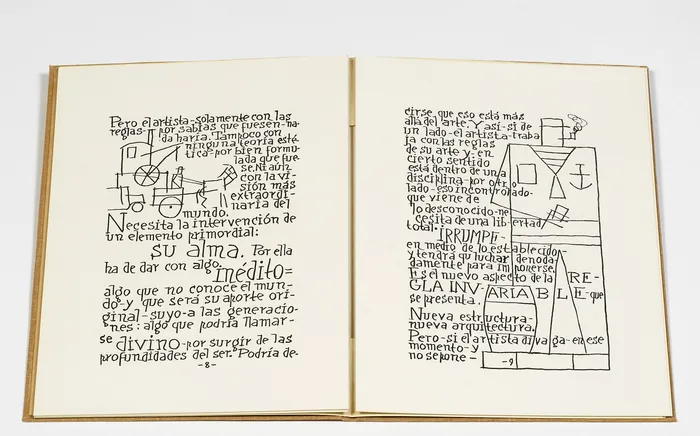 Pero el artista-solamente con las
reglas- por sabias que fuesen-na-
da haría. Tampoco con
ninguna teoría esté-
tica-por bien formu-
lada que fue-
se. Ni aún
con la vi-
sión más
extraordi-
naria del
mundo.
Necesita la intervención de
un elemento primordial:
su alma. Por ella
ha de dar con algo inédito=
algo que no conoce el mun-
do-y que será su aporte ori-
ginal-suyo-a las generacio-
nes: algo que podría llamar-
se divino-por surgir de las
profundidades del ser. Podría de-
-8-
cirse que eso está más
allá del arte. Y así-si de
un lado-el artista-traba
ja con las reglas
de su arte-y-en
cierto sentido
está dentro de una
disciplina-por otro
lado-eso incontrolado-
que viene de
lo desconocido-ne
cesita de una libertad
total. IRRUMPE-
en medio de lo establecido
y tendrá qu luchar denoda-
damente para imponerse.
Es el nuevo aspecto de la RE-
GLA INVARIABLE-que
se presenta.
Nueva estructura-
nueva arquitectura.
Pero-si el artista divaga-en ese
momento-y
no se pone-
-9-